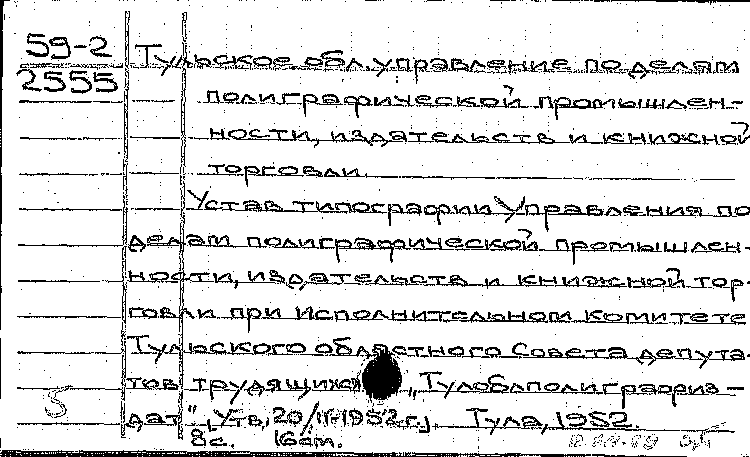 59-2
2555
Тульское обл. управление по делам
полиграфической промышлен-
ности, издательств и книжной
торговли.
Устав типографии Управления по
делам полиграфической промышлен-
ности, издательств и книжной тор-
говли при Исполнительном комитете
Тульского областного Совета депута-
тов трудящихся „Тулоблполиграфиз-
5 дат", [Утв. 20/III-1952 г.]. Тула, 1952.
8 с. 16 см.